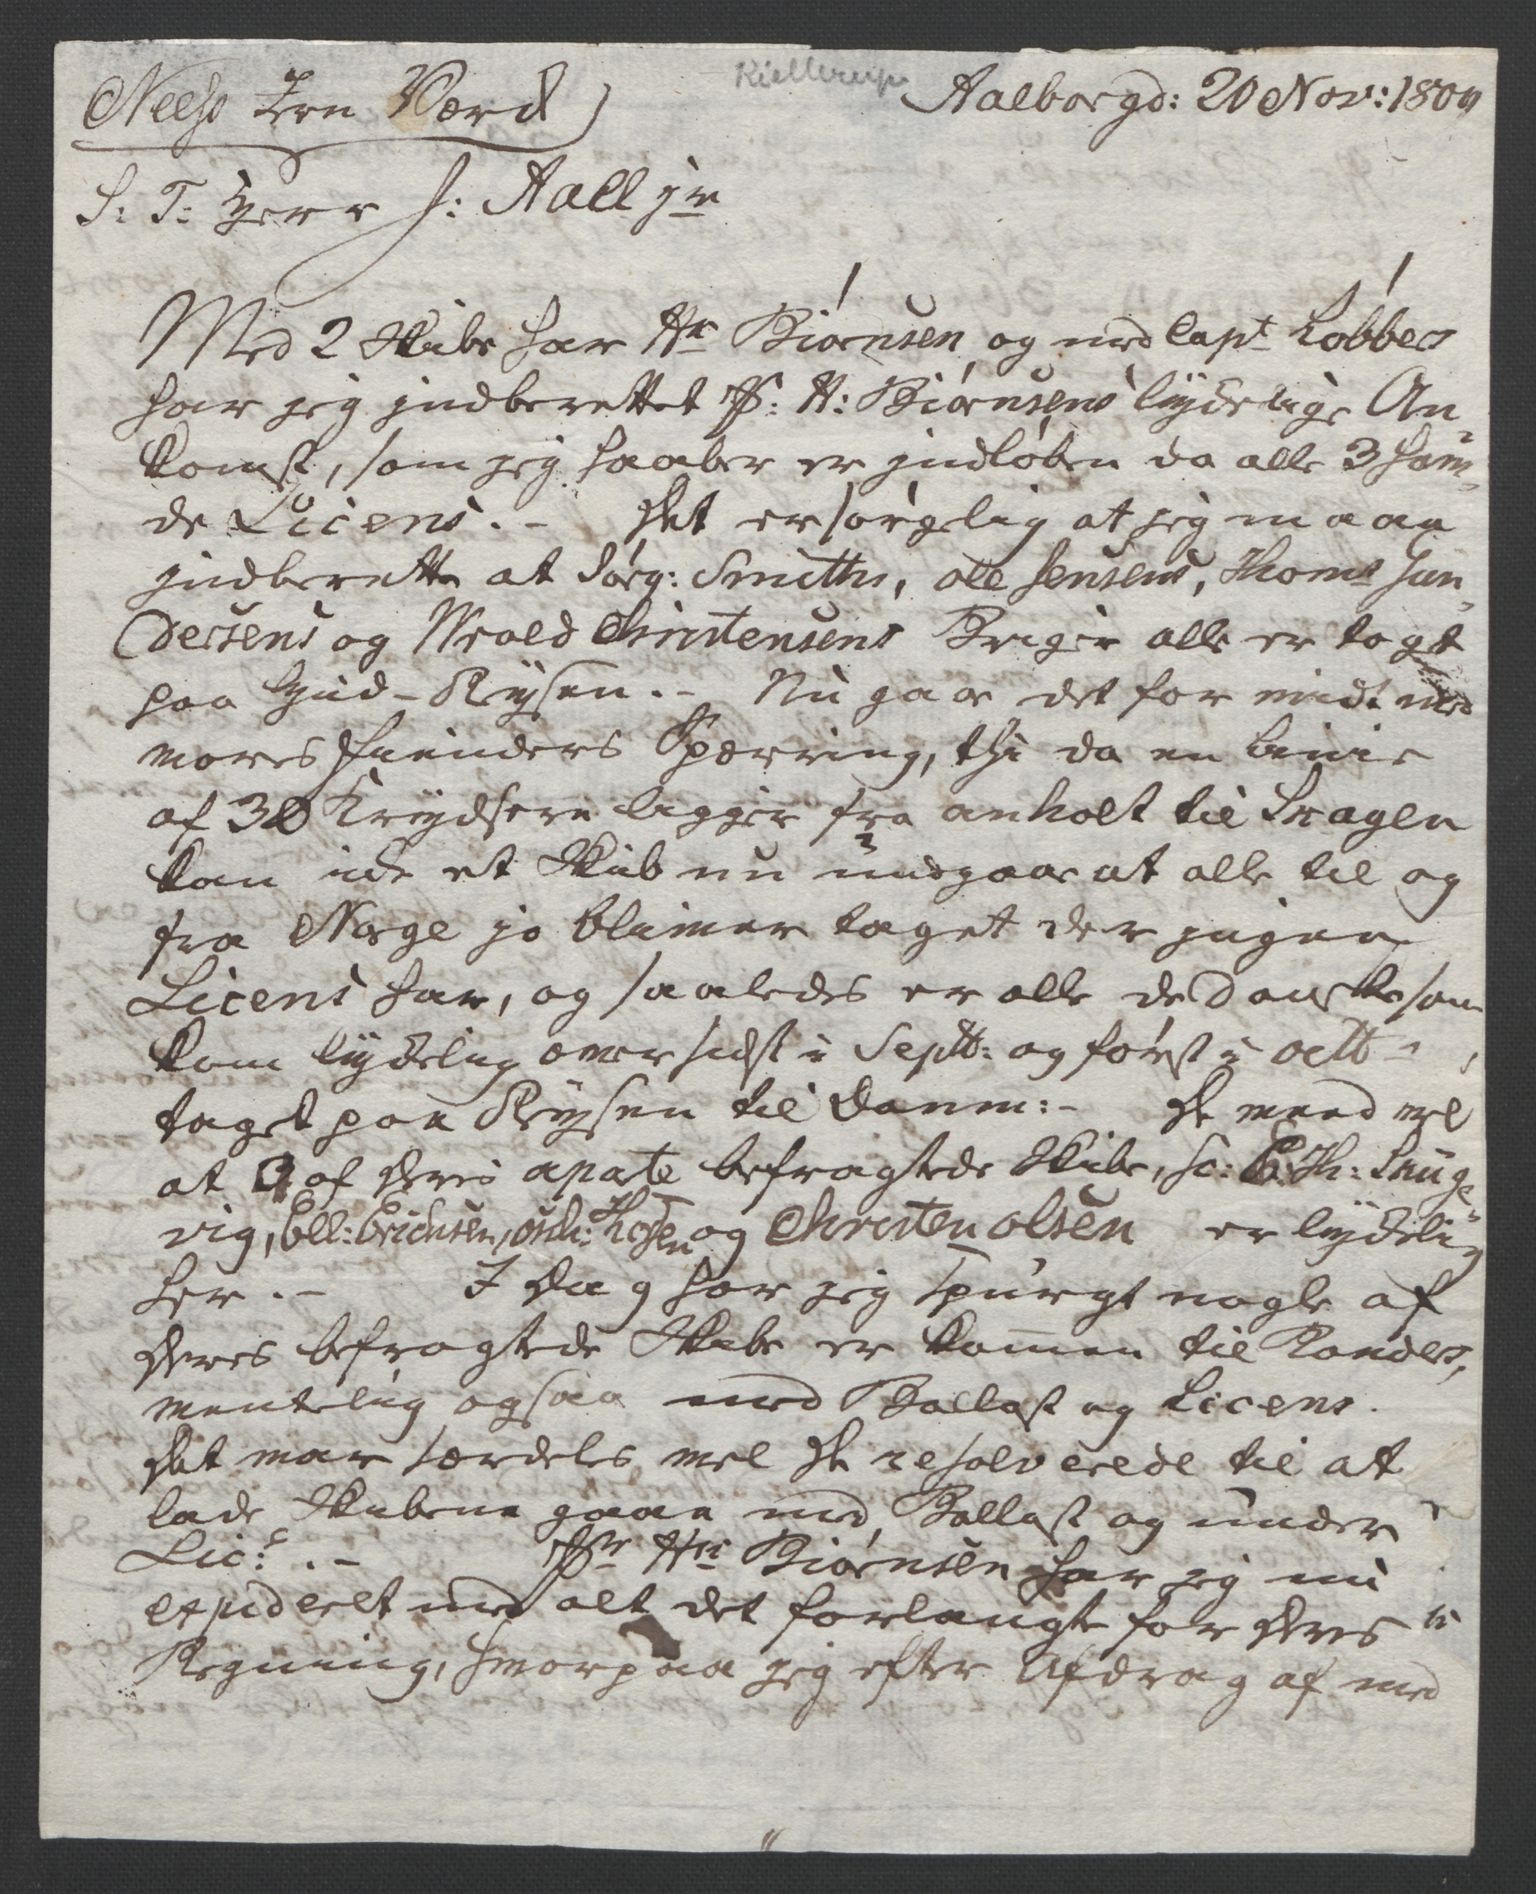 Kiellerup
Aalborg d: 20 Nov: 1809
Næs Jern Værk
S: T: Herr J: Aall jr
Med 2 Skibe har Hr Biørnsen og med Capt Lobbes
har jeg indberettet Hr: H: Biørnsens lydelige An-
komst, som jeg haaber er indløben da alle 3 hav-
de Licens. - Det er sørgelig at jeg maae
indberette at Jørg: Smiths, Ole Jensens, Thoms Gun-
dersens og Wrold Christensens Brigger alle er togt
paa Hiid-Rysen. - Nu gaar det for vidt med
vores Fienders Spærring, thi da en Linie
af 30 Krydsere ligger fra Anholt til Skagen
kan icke et Skib nu undgaae at alle til og
fra Norge jo bliver taget der ingen
Licens har, og saaledes er alle de Danske som
kom lydelig over sidst i Septb: og først i Octb -
taget paa Rysen til Danm: - De veed vel
at 4 af Deres aparte befragtede Skibe, sc: E. Th: Snuge-
vig, Ell: Erichsen, Osul: Thosen og Christen Olsen er lydelig
her. - I Dag har jeg spurgt nogle af
Deres befragtede Skibe er kommen til Randers,
ventelig ogsaa med Ballast og Licens.
Det var særdeles vel De resolverede til at
lade Skibene gaae med Ballast og under
Lic: . - Pr Hr Biørnsen har jeg nu
expideret med alt det forlangte for Deres
Regning, hvorpaa jeg efter Afdrag af med